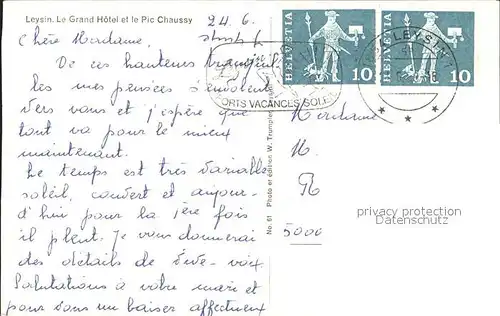 Leysin. Le Grand Hôtel et le Pic Chaussy
24.6.
Chère Madame,
De ces hauteurs tranquilles
les mes pensées s'envolent
vers vous et j'espère que
tout va pour le mieux
maintenant.
Le temps est très variable
soleil, couvert et aujour-
d'hui pour la 1ère fois
il pleut. Je vous donnerai
des détails de vive-voix
Salutations à votre mari et
pour vous un baiser affectueux
No. 61 Photo et édition W. Trumpler
HELVETIA 10
HELVETIA 10
SPORTS VACANCES SOLEIL
LEYSIN
Madame
M.
R
5000
privacy protection
Datenschutz